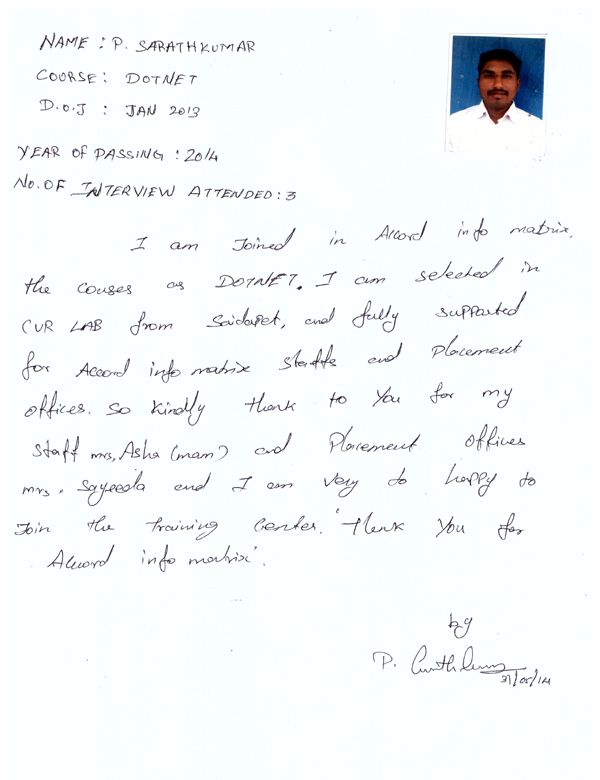 NAME : P. SARATHKUMAR
COURSE : DOTNET
D.O.J : JAN 2013
YEAR OF PASSING : 2014
No. OF INTERVIEW ATTENDED : 3
I am Joined in Accord info matrix.
the couses as DOTNET. I am selected in
CVR LAB from Saidapet, and fully supported
for Accord info matrix staffs and Placement
offices. So kindly thank to You for my
Staff mrs, Asha (mam) and Placement offices
mrs. Sayeeda and I am very to happy to
Join the training Center. 'Thank You for
Accord info matrix'.
by
P.
31/05/14